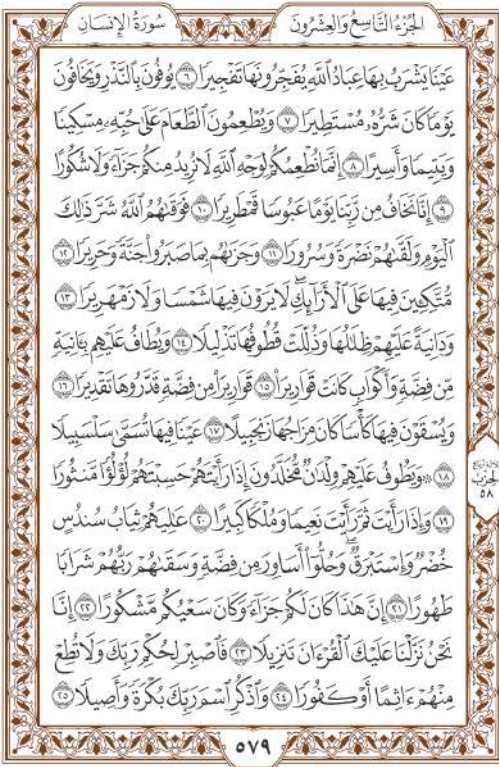 سُورَةُ الإِنسَانِ
الجُزْءُ التَّاسِعُ وَالعِشْرُونَ
عَيْنًا يَشْرَبُ بِهَا عِبَادُ ٱللَّهِ يُفَجِّرُونَهَا تَفْجِيرًا ٦ يُوفُونَ بِٱلنَّذْرِ وَيَخَافُونَ
يَوْمًا كَانَ شَرُّهُۥ مُسْتَطِيرًا ٧ وَيُطْعِمُونَ ٱلطَّعَامَ عَلَىٰ حُبِّهِۦ مِسْكِينًا
وَيَتِيمًا وَأَسِيرًا ٨ إِنَّمَا نُطْعِمُكُمْ لِوَجْهِ ٱللَّهِ لَا نُرِيدُ مِنكُمْ جَزَآءً وَلَا شُكُورًا
٩ إِنَّا نَخَافُ مِن رَّبِّنَا يَوْمًا عَبُوسًا قَمْطَرِيرًا ١٠ فَوَقَىٰهُمُ ٱللَّهُ شَرَّ ذَٰلِكَ
ٱلْيَوْمِ وَلَقَّىٰهُمْ نَضْرَةً وَسُرُورًا ١١ وَجَزَىٰهُم بِمَا صَبَرُوا۟ جَنَّةً وَحَرِيرًا ١٢
مُّتَّكِـِٔينَ فِيهَا عَلَى ٱلْأَرَآئِكِ ۖ لَا يَرَوْنَ فِيهَا شَمْسًا وَلَا زَمْهَرِيرًا ١٣
وَدَانِيَةً عَلَيْهِمْ ظِلَٰلُهَا وَذُلِّلَتْ قُطُوفُهَا تَذْلِيلًا ١٤ وَيُطَافُ عَلَيْهِم بِـَٔانِيَةٍ
مِّن فِضَّةٍ وَأَكْوَابٍ كَانَتْ قَوَارِيرَا۠ ١٥ قَوَارِيرَا۟ مِن فِضَّةٍ قَدَّرُوهَا تَقْدِيرًا ١٦
وَيُسْقَوْنَ فِيهَا كَأْسًا كَانَ مِزَاجُهَا زَنجَبِيلًا ١٧ عَيْنًا فِيهَا تُسَمَّىٰ سَلْسَبِيلًا
١٨ ۞ وَيَطُوفُ عَلَيْهِمْ وِلْدَٰنٌ مُّخَلَّدُونَ إِذَا رَأَيْتَهُمْ حَسِبْتَهُمْ لُؤْلُؤًا مَّنثُورًا
١٩ وَإِذَا رَأَيْتَ ثَمَّ رَأَيْتَ نَعِيمًا وَمُلْكًا كَبِيرًا ٢٠ عَٰلِيَهُمْ ثِيَابُ سُندُسٍ
خُضْرٌ وَإِسْتَبْرَقٌ ۖ وَحُلُّوٓا۟ أَسَاوِرَ مِن فِضَّةٍ وَسَقَىٰهُمْ رَبُّهُمْ شَرَابًا
طَهُورًا ٢١ إِنَّ هَٰذَا كَانَ لَكُمْ جَزَآءً وَكَانَ سَعْيُكُم مَّشْكُورًا ٢٢ إِنَّا
نَحْنُ نَزَّلْنَا عَلَيْكَ ٱلْقُرْءَانَ تَنزِيلًا ٢٣ فَٱصْبِرْ لِحُكْمِ رَبِّكَ وَلَا تُطِعْ
مِنْهُمْ ءَاثِمًا أَوْ كَفُورًا ٢٤ وَٱذْكُرِ ٱسْمَ رَبِّكَ بُكْرَةً وَأَصِيلًا ٢٥
الحِزْب
٥٨
٥٧٩